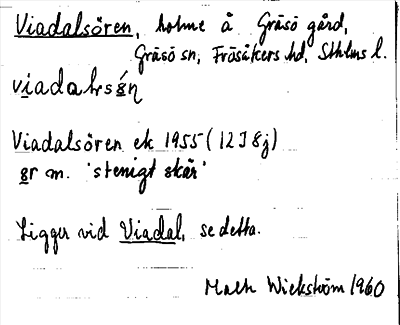 Viadalsören, holme å Gräsö gård,
Gräsö sn, Frösåkers hd, Sthlms l.
Viadalsören ek 1955 (12I8j)
ör m. 'stenigt skär'
Ligger vid Viadal, se detta.
Wickström 1960